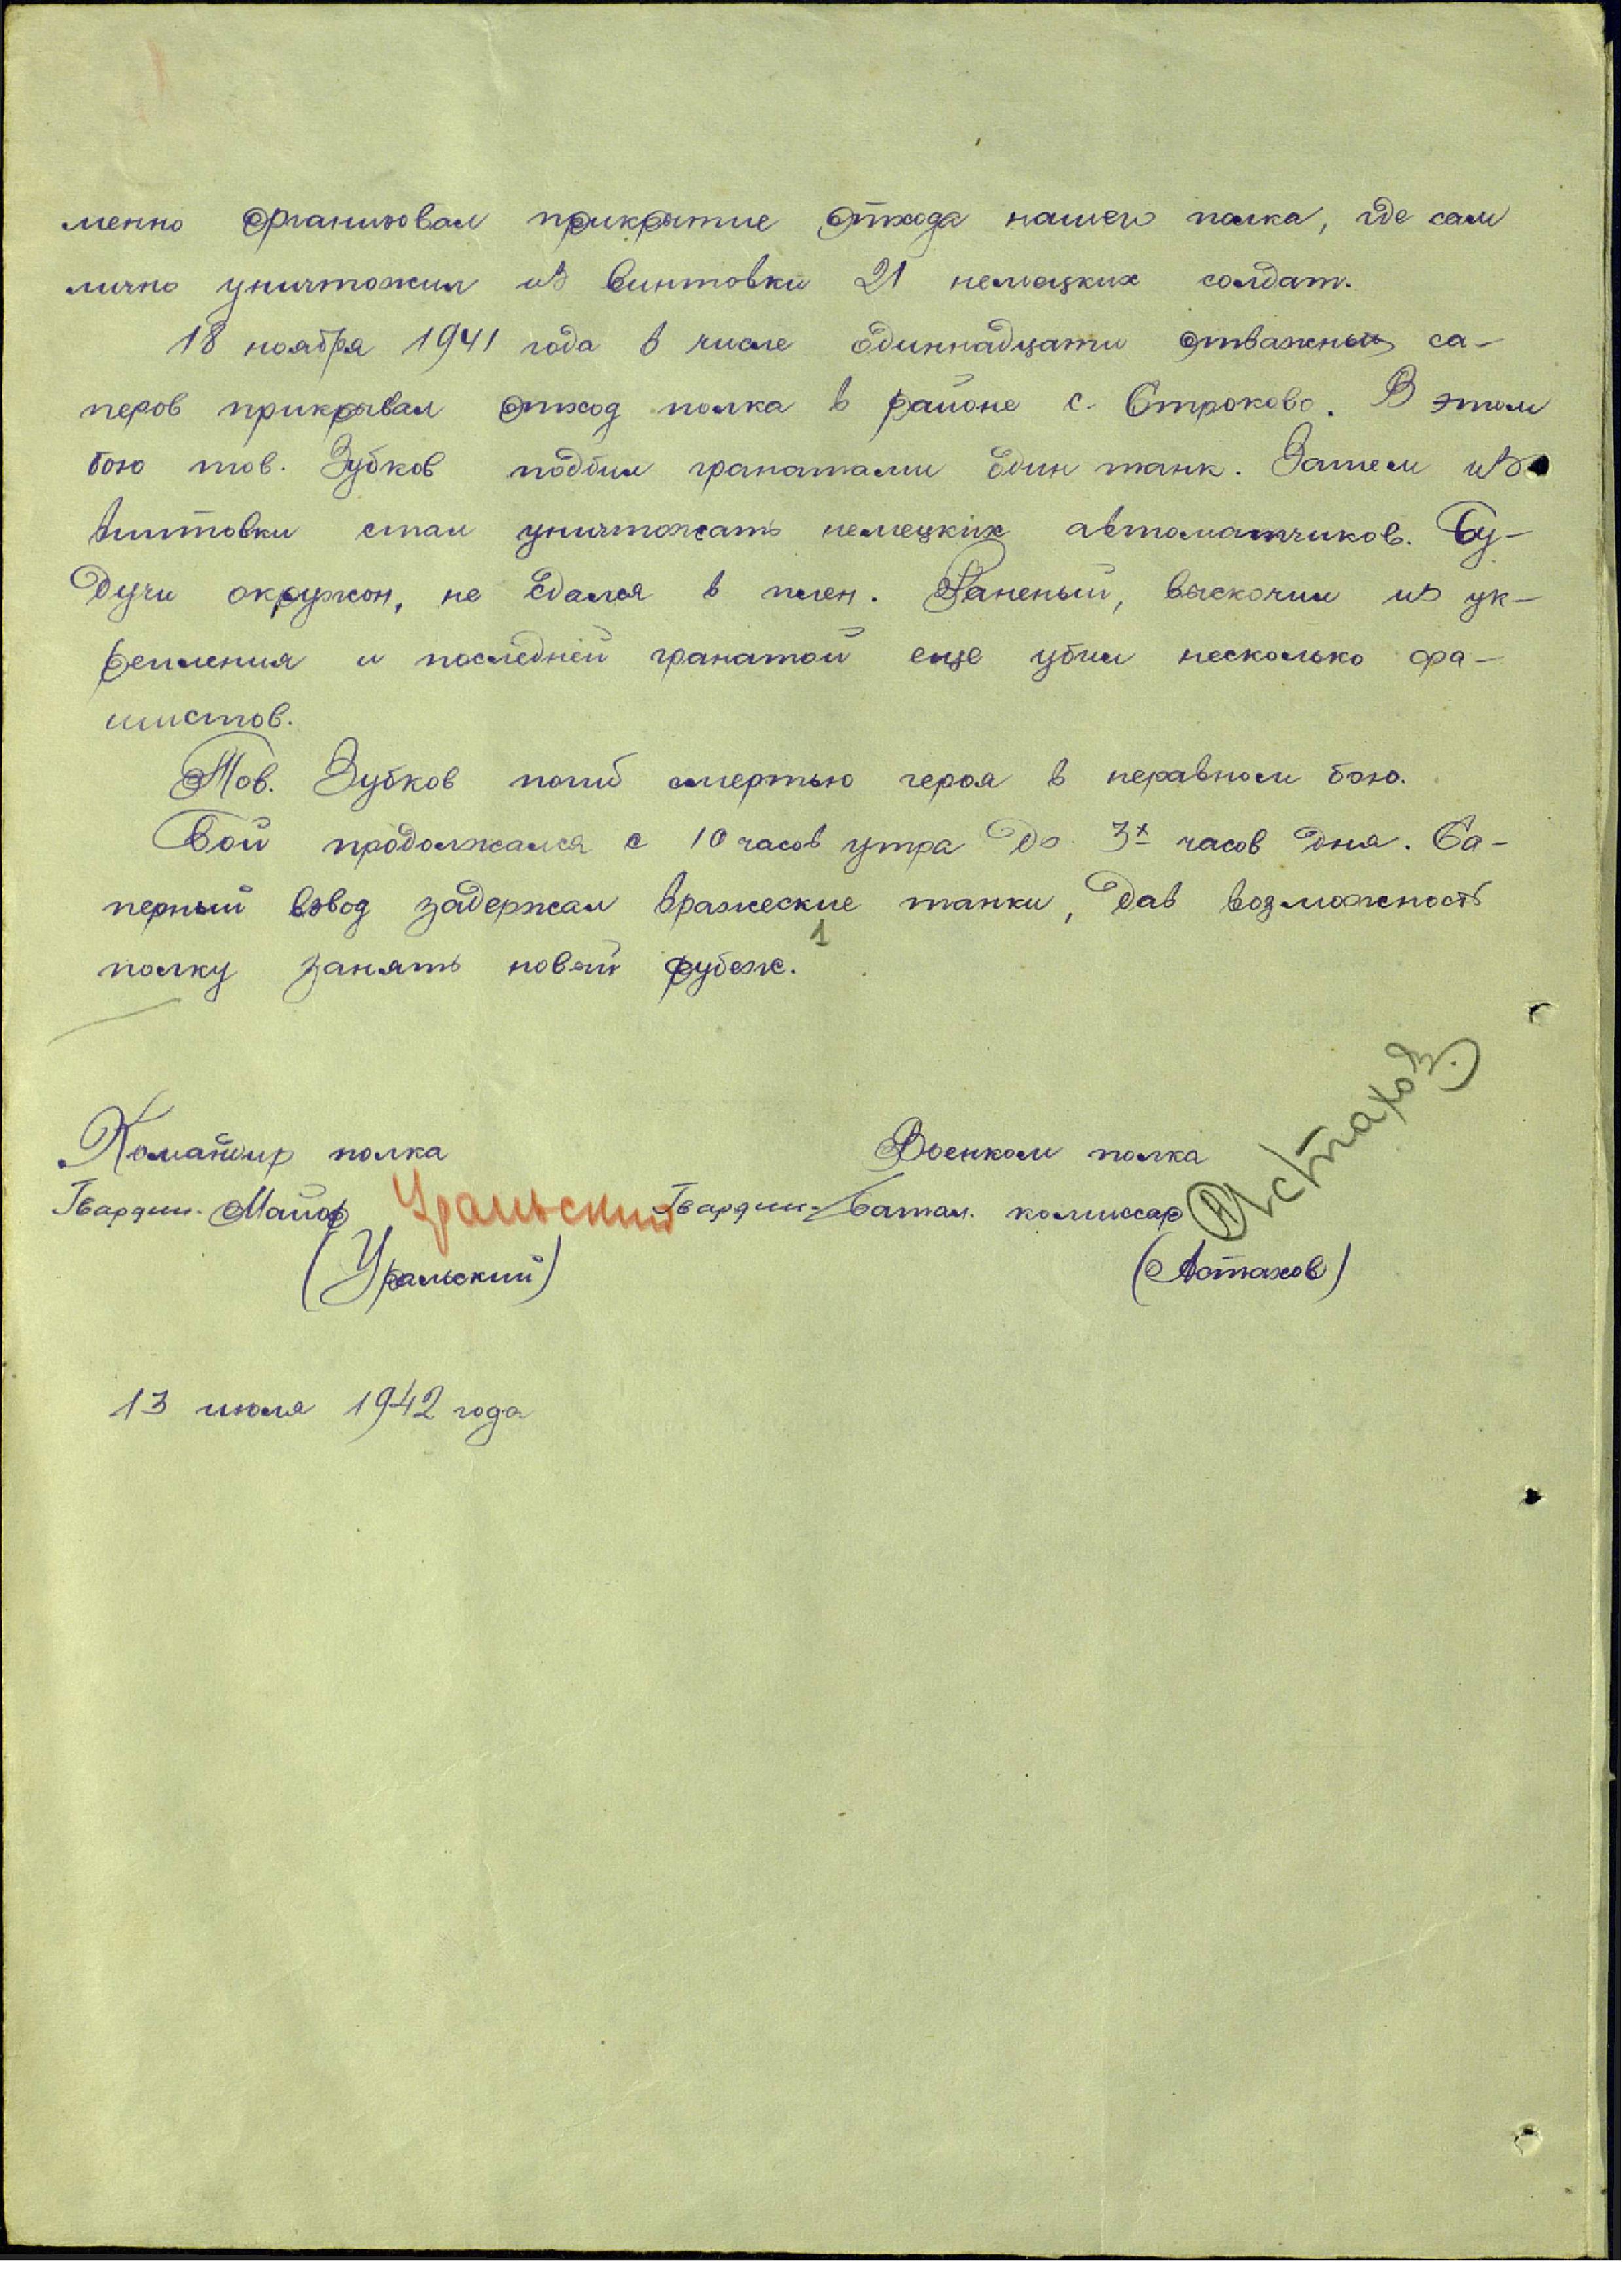 менно организовал прикрытие отхода нашего полка, где сам
лично уничтожил из винтовки 21 немецких солдат.
18 ноября 1941 года в числе одиннадцати отважных са-
перов прикрывал отход полка в районе с. Строково. В этом
бою тов. Зубков подбил гранатами один танк. Затем из
винтовки стал уничтожать немецких автоматчиков. Бу-
дучи окружон, не сдался в плен. Раненый, выскочил из ук-
репления и последней гранатой еще убил несколько фа-
шистов.
Тов. Зубков погиб смертью героя в неравном бою.
Бой продолжался с 10 часов утра до 3х часов дня. Са-
перный взвод задержал вражеские танки, дав возможность
1
полку занять новый рубеж.
Командир полка Военком полка
Гвардии Майор Уральский Гвардии Батал. комиссар Астахов
(Уральский) (Астахов)
13 июля 1942 года